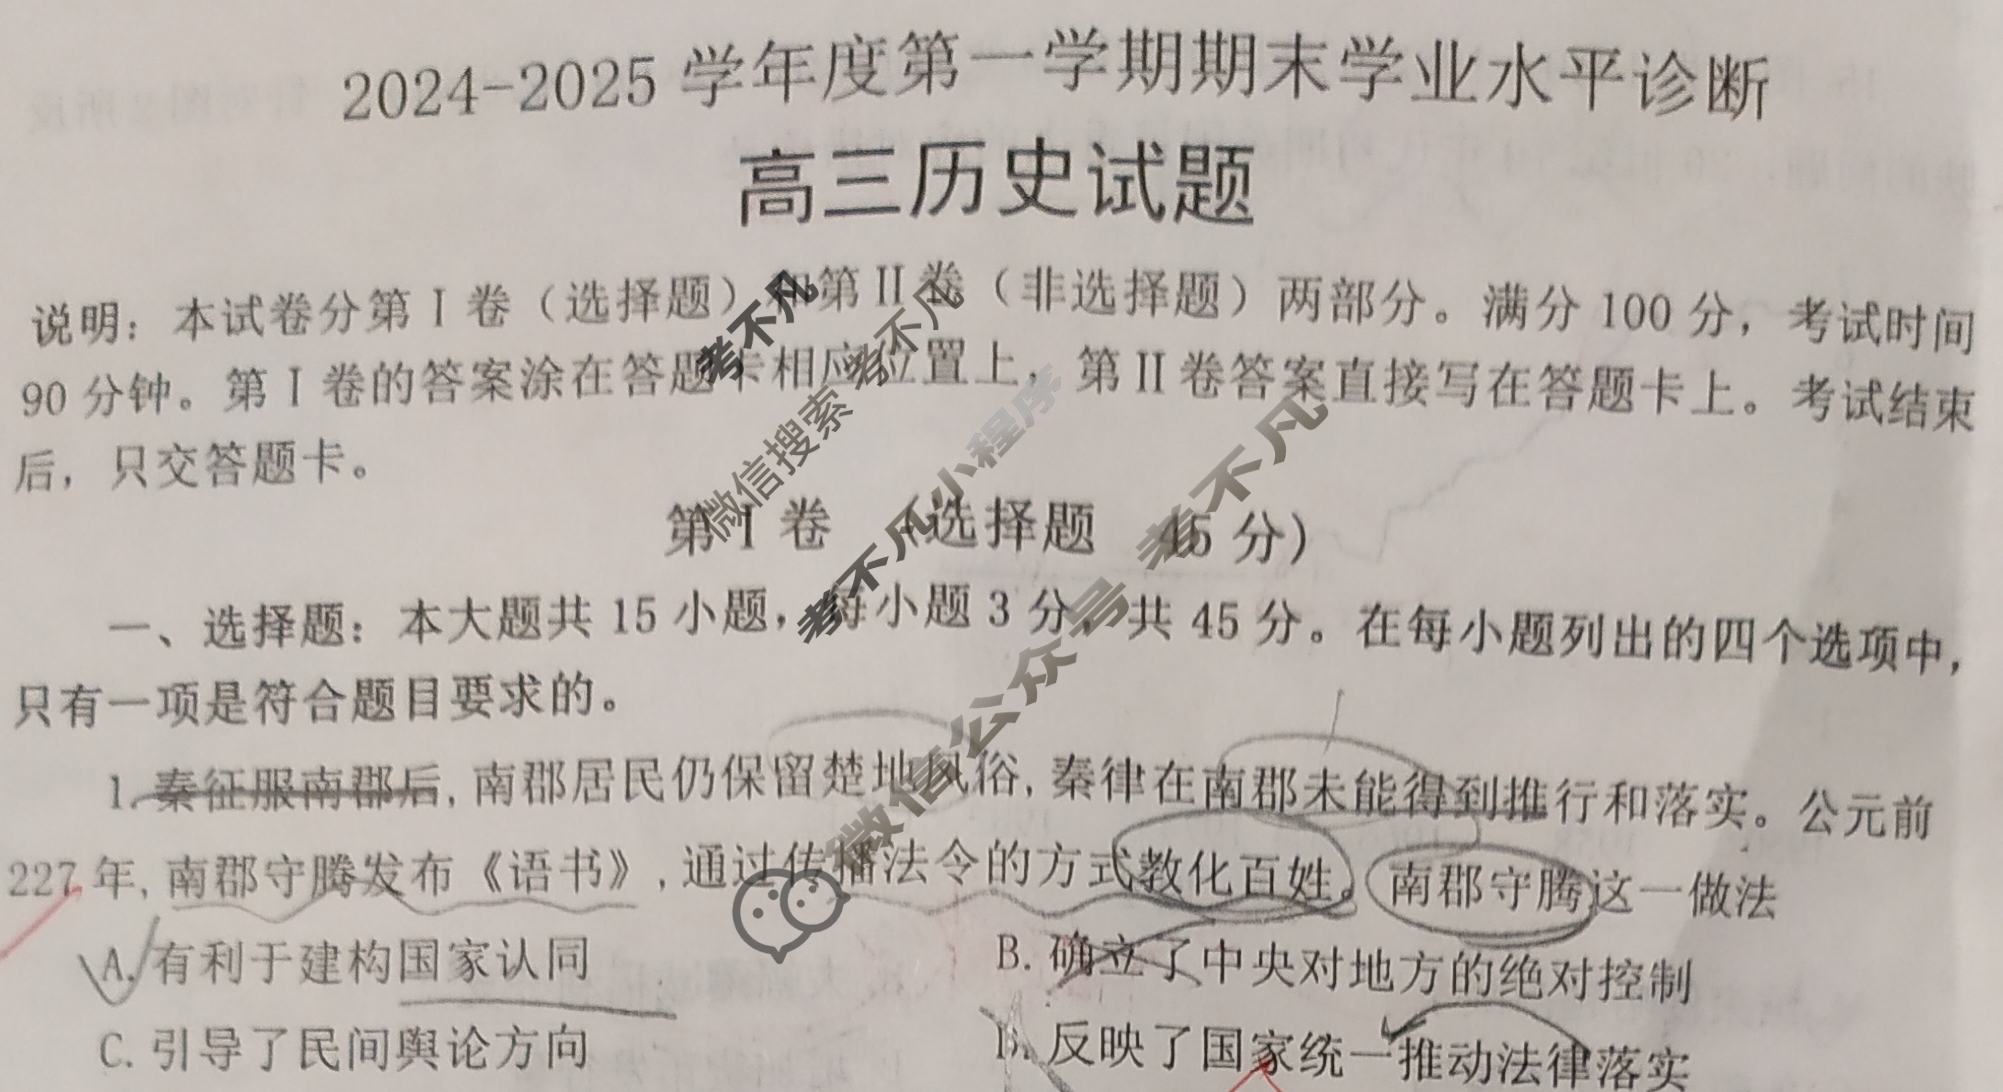 2024-2025 学年度第一学期期末学业水平诊断
高三历史试题
说明：本试卷分第 I 卷（选择题）和第 II 卷（非选择题）两部分。满分 100 分，考试时间
90 分钟。第 I 卷的答案涂在答题卡相应位置上，第 II 卷答案直接写在答题卡上。考试结束
后，只交答题卡。
第 I 卷 （选择题 45 分）
一、选择题：本大题共 15 小题，每小题 3 分，共 45 分。在每小题列出的四个选项中，
只有一项是符合题目要求的。
1. 秦征服南郡后，南郡居民仍保留楚地风俗，秦律在南郡未能得到推行和落实。公元前
227 年，南郡守腾发布《语书》，通过传播法令的方式教化百姓。南郡守腾这一做法
A. 有利于建构国家认同 B. 确立了中央对地方的绝对控制
C. 引导了民间舆论方向 D. 反映了国家统一推动法律落实
考不凡
微信搜索 考不凡
考不凡小程序
微信公众号 考不凡